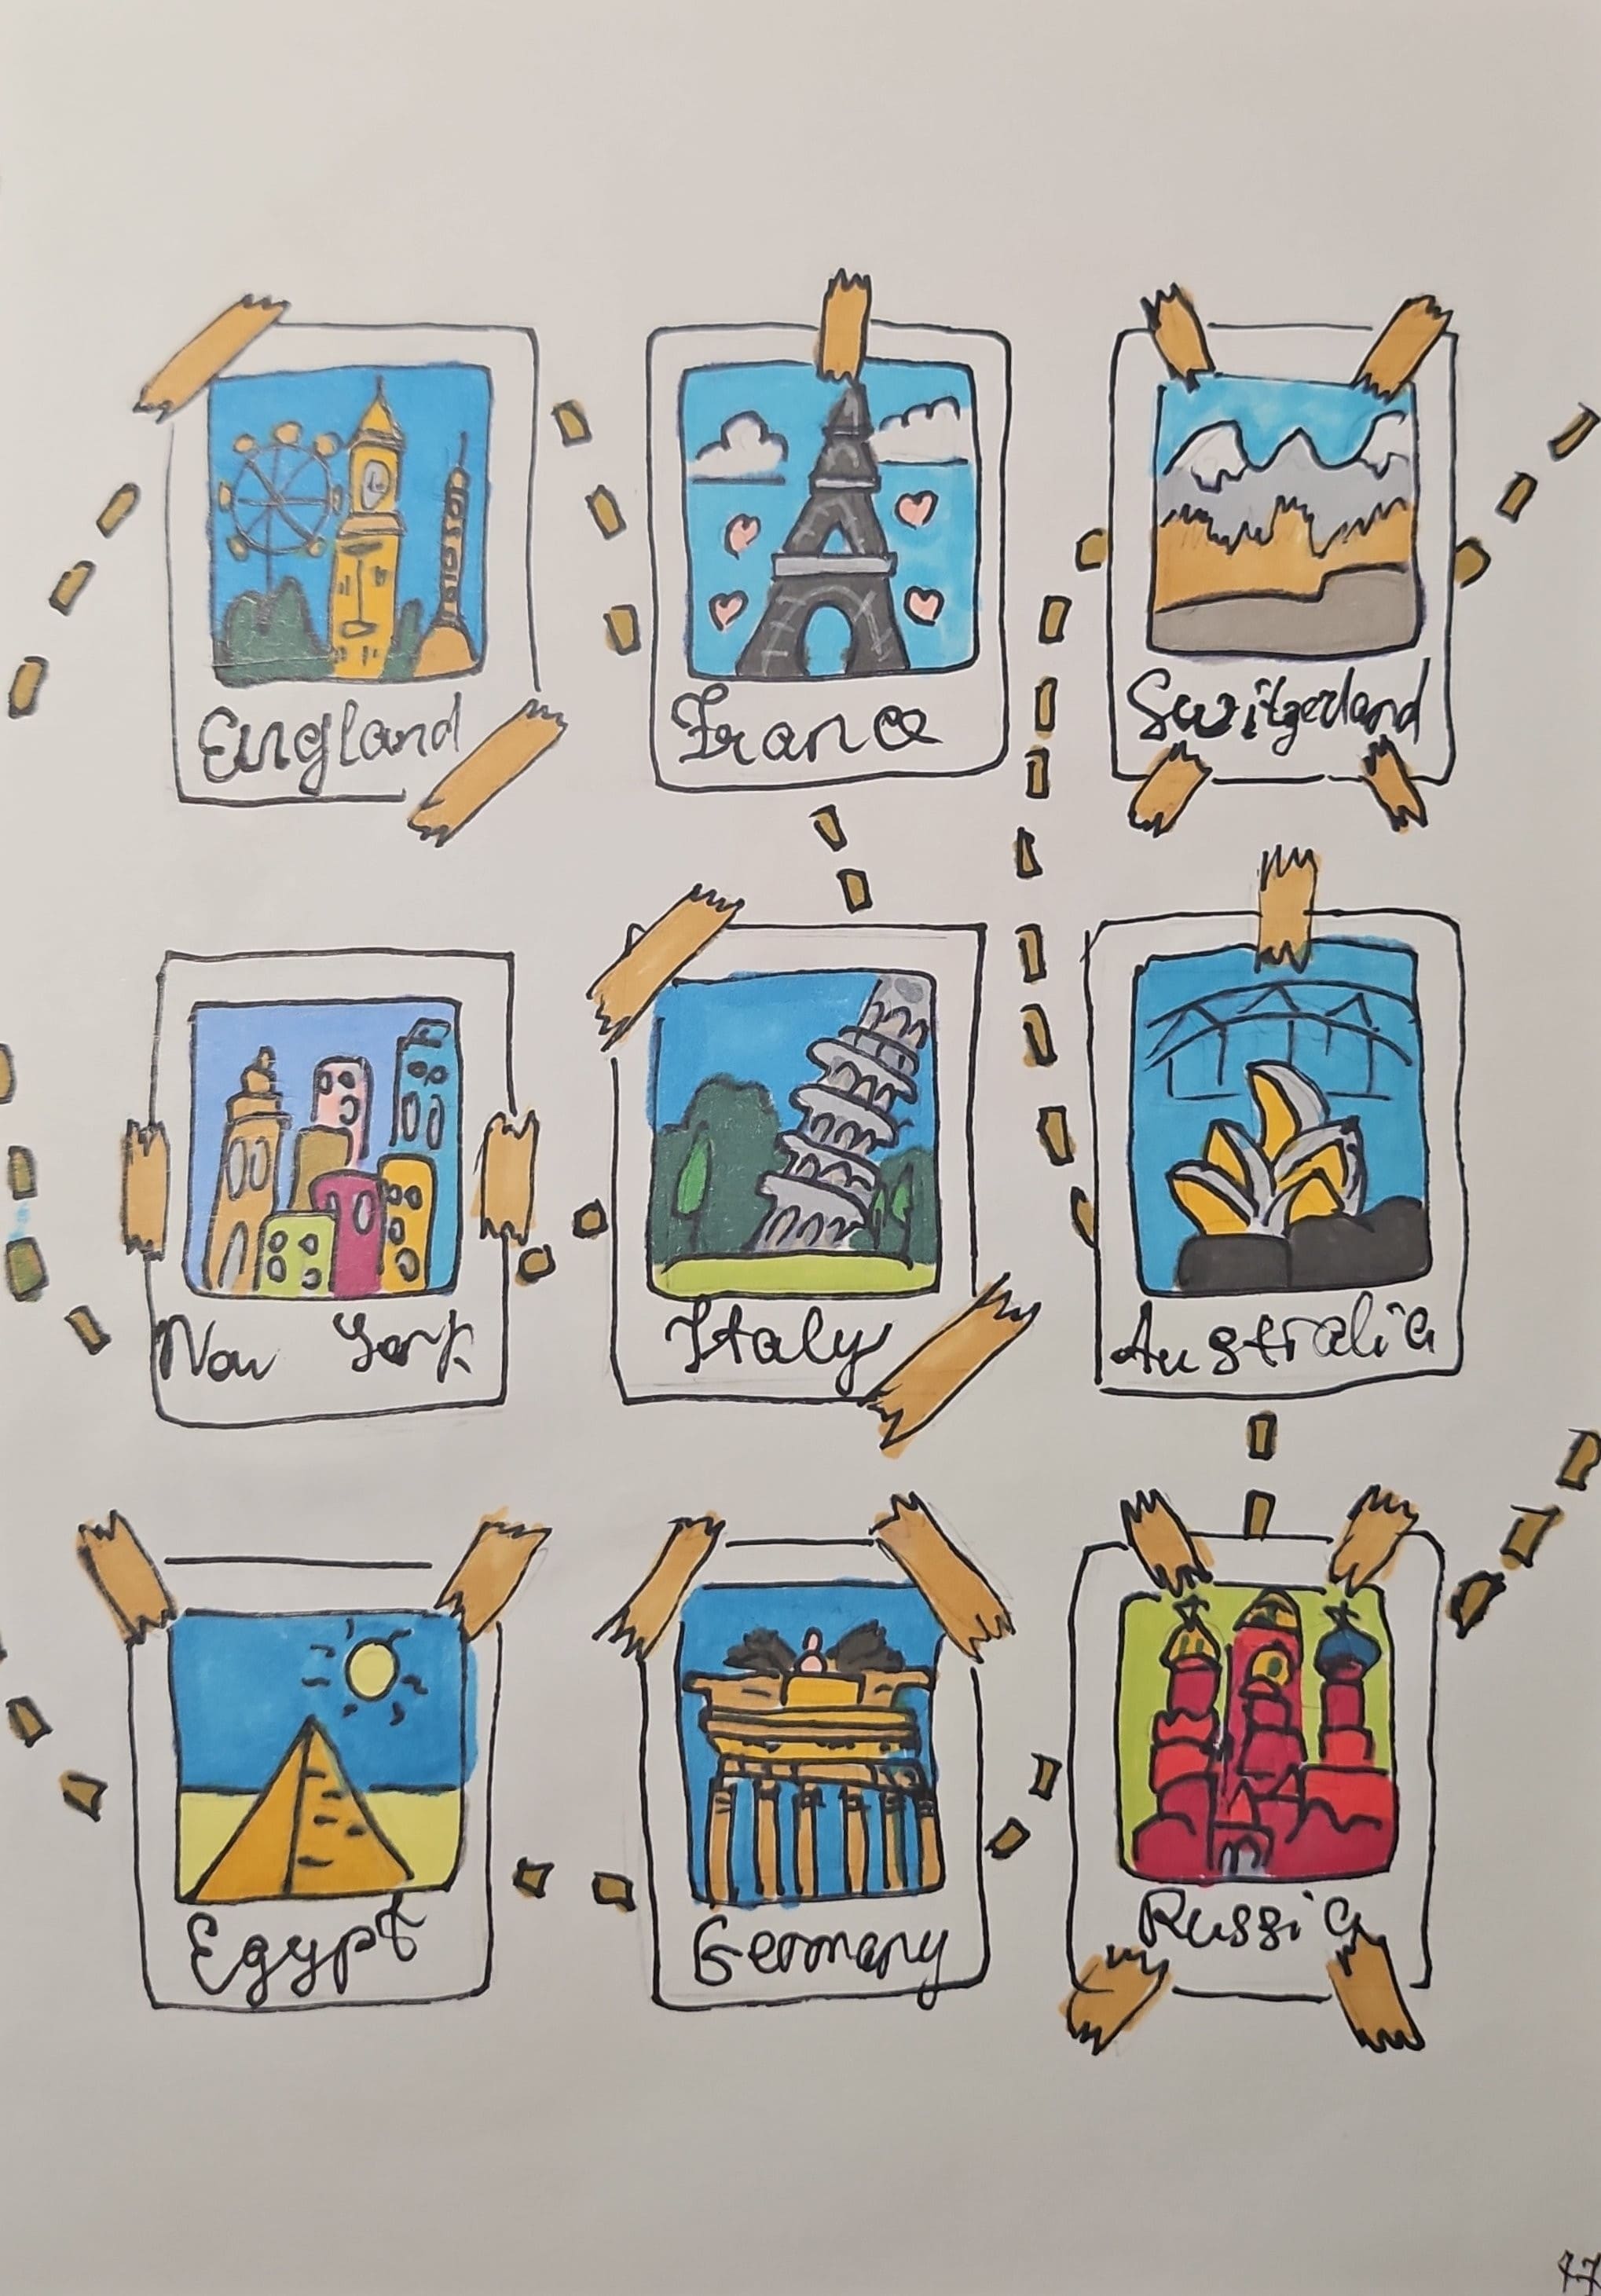 England
France
Switzerland
New York
Italy
Australia
Egypt
Germany
Russia